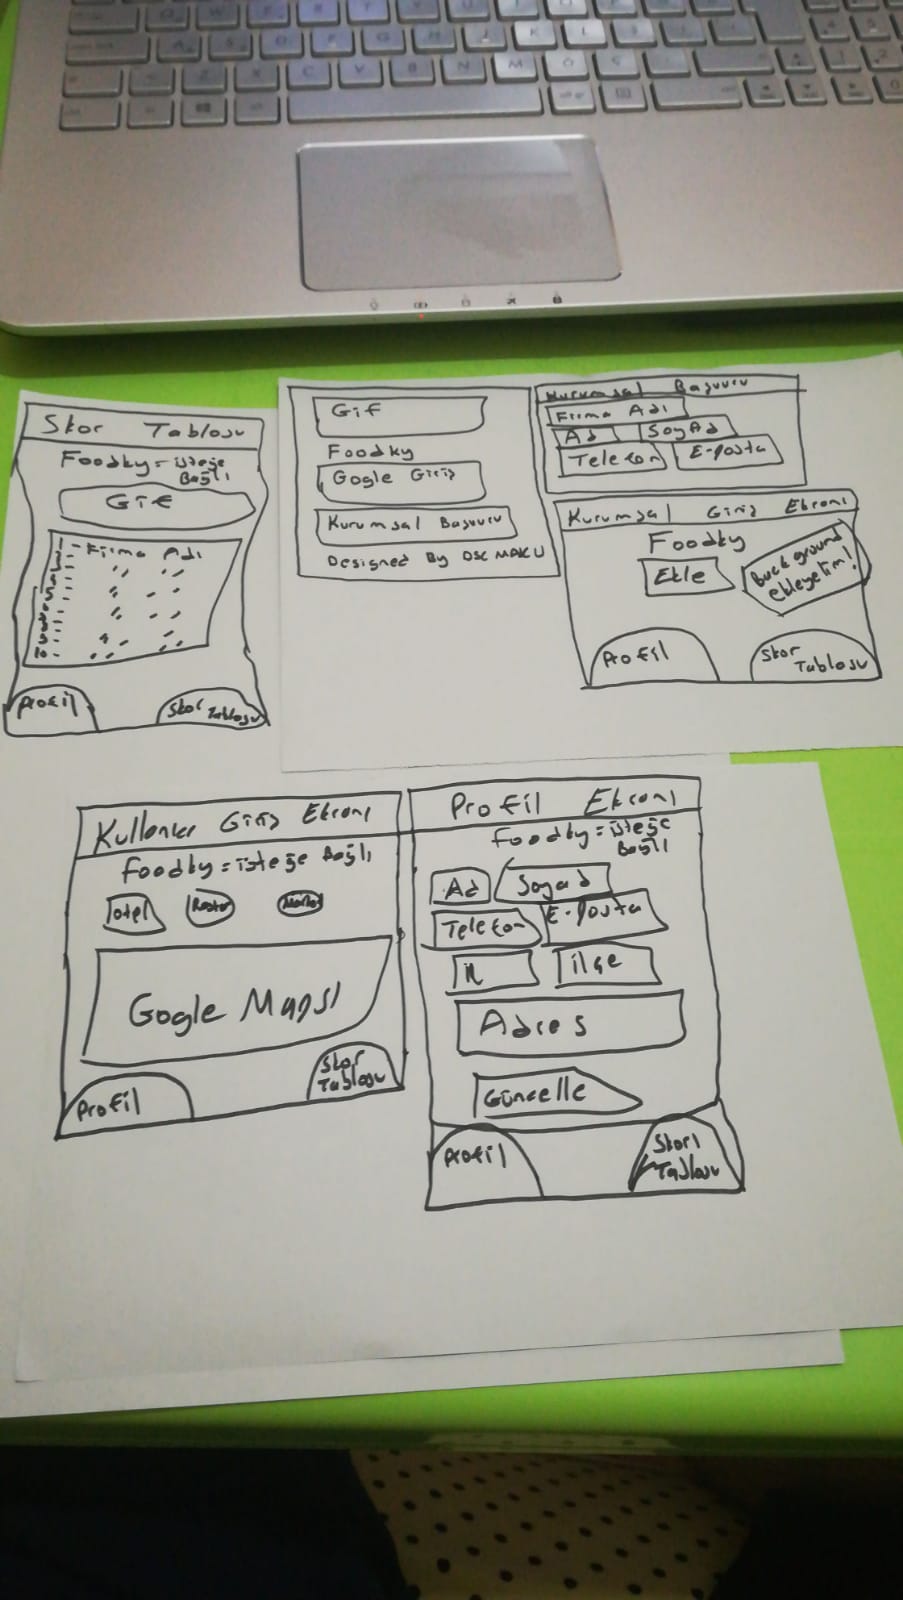 Skor Tablosu
Foodky = isteğe
Bağlı
Gif
Firma Adı
10
Profil
Skor Tablosu
Gif
Foodky
Gogle Giriş
Kurumsal Başvuru
Designed By DSC MAKU
Kurumsal Başvuru
Firma Adı
Ad
Soyad
Telefon
E-posta
Kurumsal Giriş Ekranı
Foodky
Ekle
Background
ekleyelim!
Profil
Skor
Tablosu
Kullanıcı Giriş Ekranı
Foodky = isteğe Bağlı
otel
Market
Gogle Mapsı
Profil
Skor
Tablosu
Profil Ekranı
Foodky = isteğe
Bağlı
Ad
Soyad
Telefon
E-posta
il
ilçe
Adres
Güncelle
Profil
Skor
Tablosu